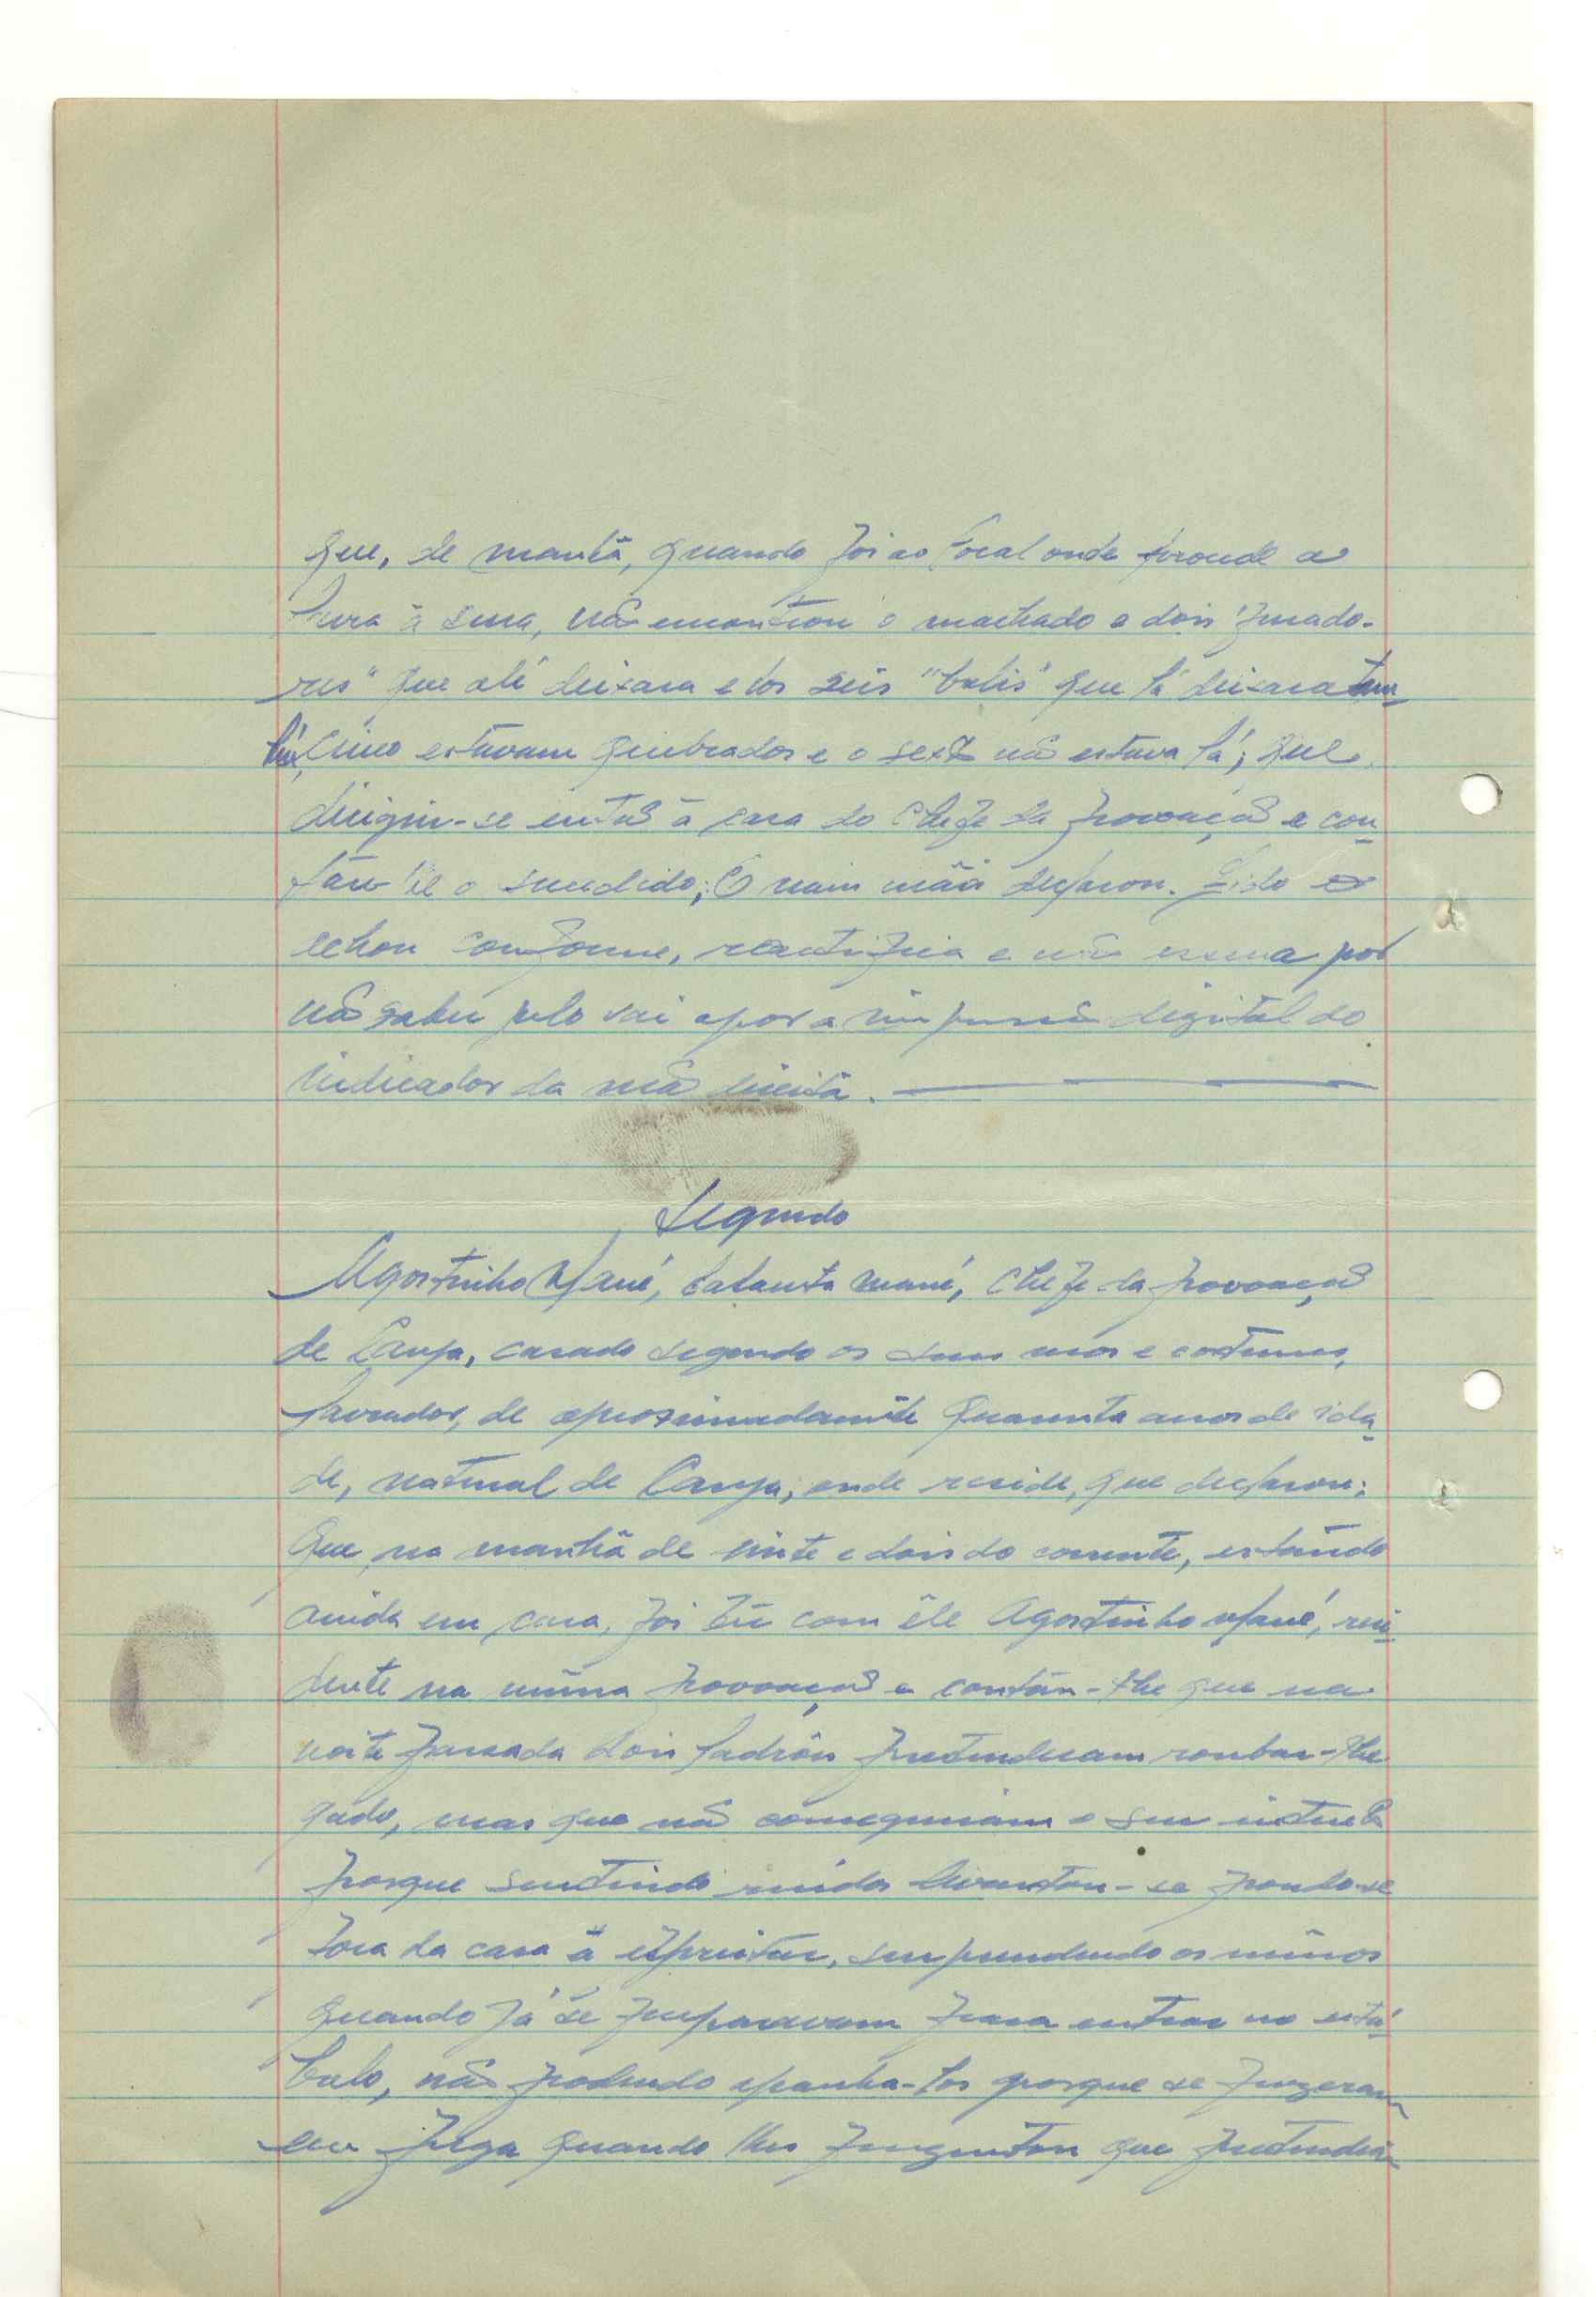 que, de manhã, quando foi ao local onde prende a
sua, não encontrou o machado e dois "furado-
res" que ali deixara e dos seis "balis" que lá deixara tam-
bém, cinco estavam quebrados e o sexto não estava lá; que
dirigiu-se então à casa do chefe da povoação e con-
tou-lhe o sucedido; E mais não declarou. Lido
achou conforme, ractifica e não assina por
não saber pelo vai apor a impressão digital do
indicador da mão direita.
Segundo
Agostinho Mané, balanta mané, chefe da povoação
de , casado segundo os seus usos e costumes,
lavrador, de aproximadamente quarenta anos de ida-
de, natural de , onde reside, que declarou:
Que, na manhã de vinte e dois do corrente, estando
ainda em casa, foi ter com êle Agostinho Mané, resi-
dente na mesma povoação e contou-lhe que na
noite passada dois ladrões pretenderam roubar-lhe
gado, mas que não conseguiram o seu intento
porque sentindo ruídos levantou-se pondo-se
fora da casa à espreitar, surpreendendo os mesmos
quando já se preparavam para entrar no está-
bulo, não podendo apanha-los porque se puzeram
em fuga quando lhes preguntou que pretendiam